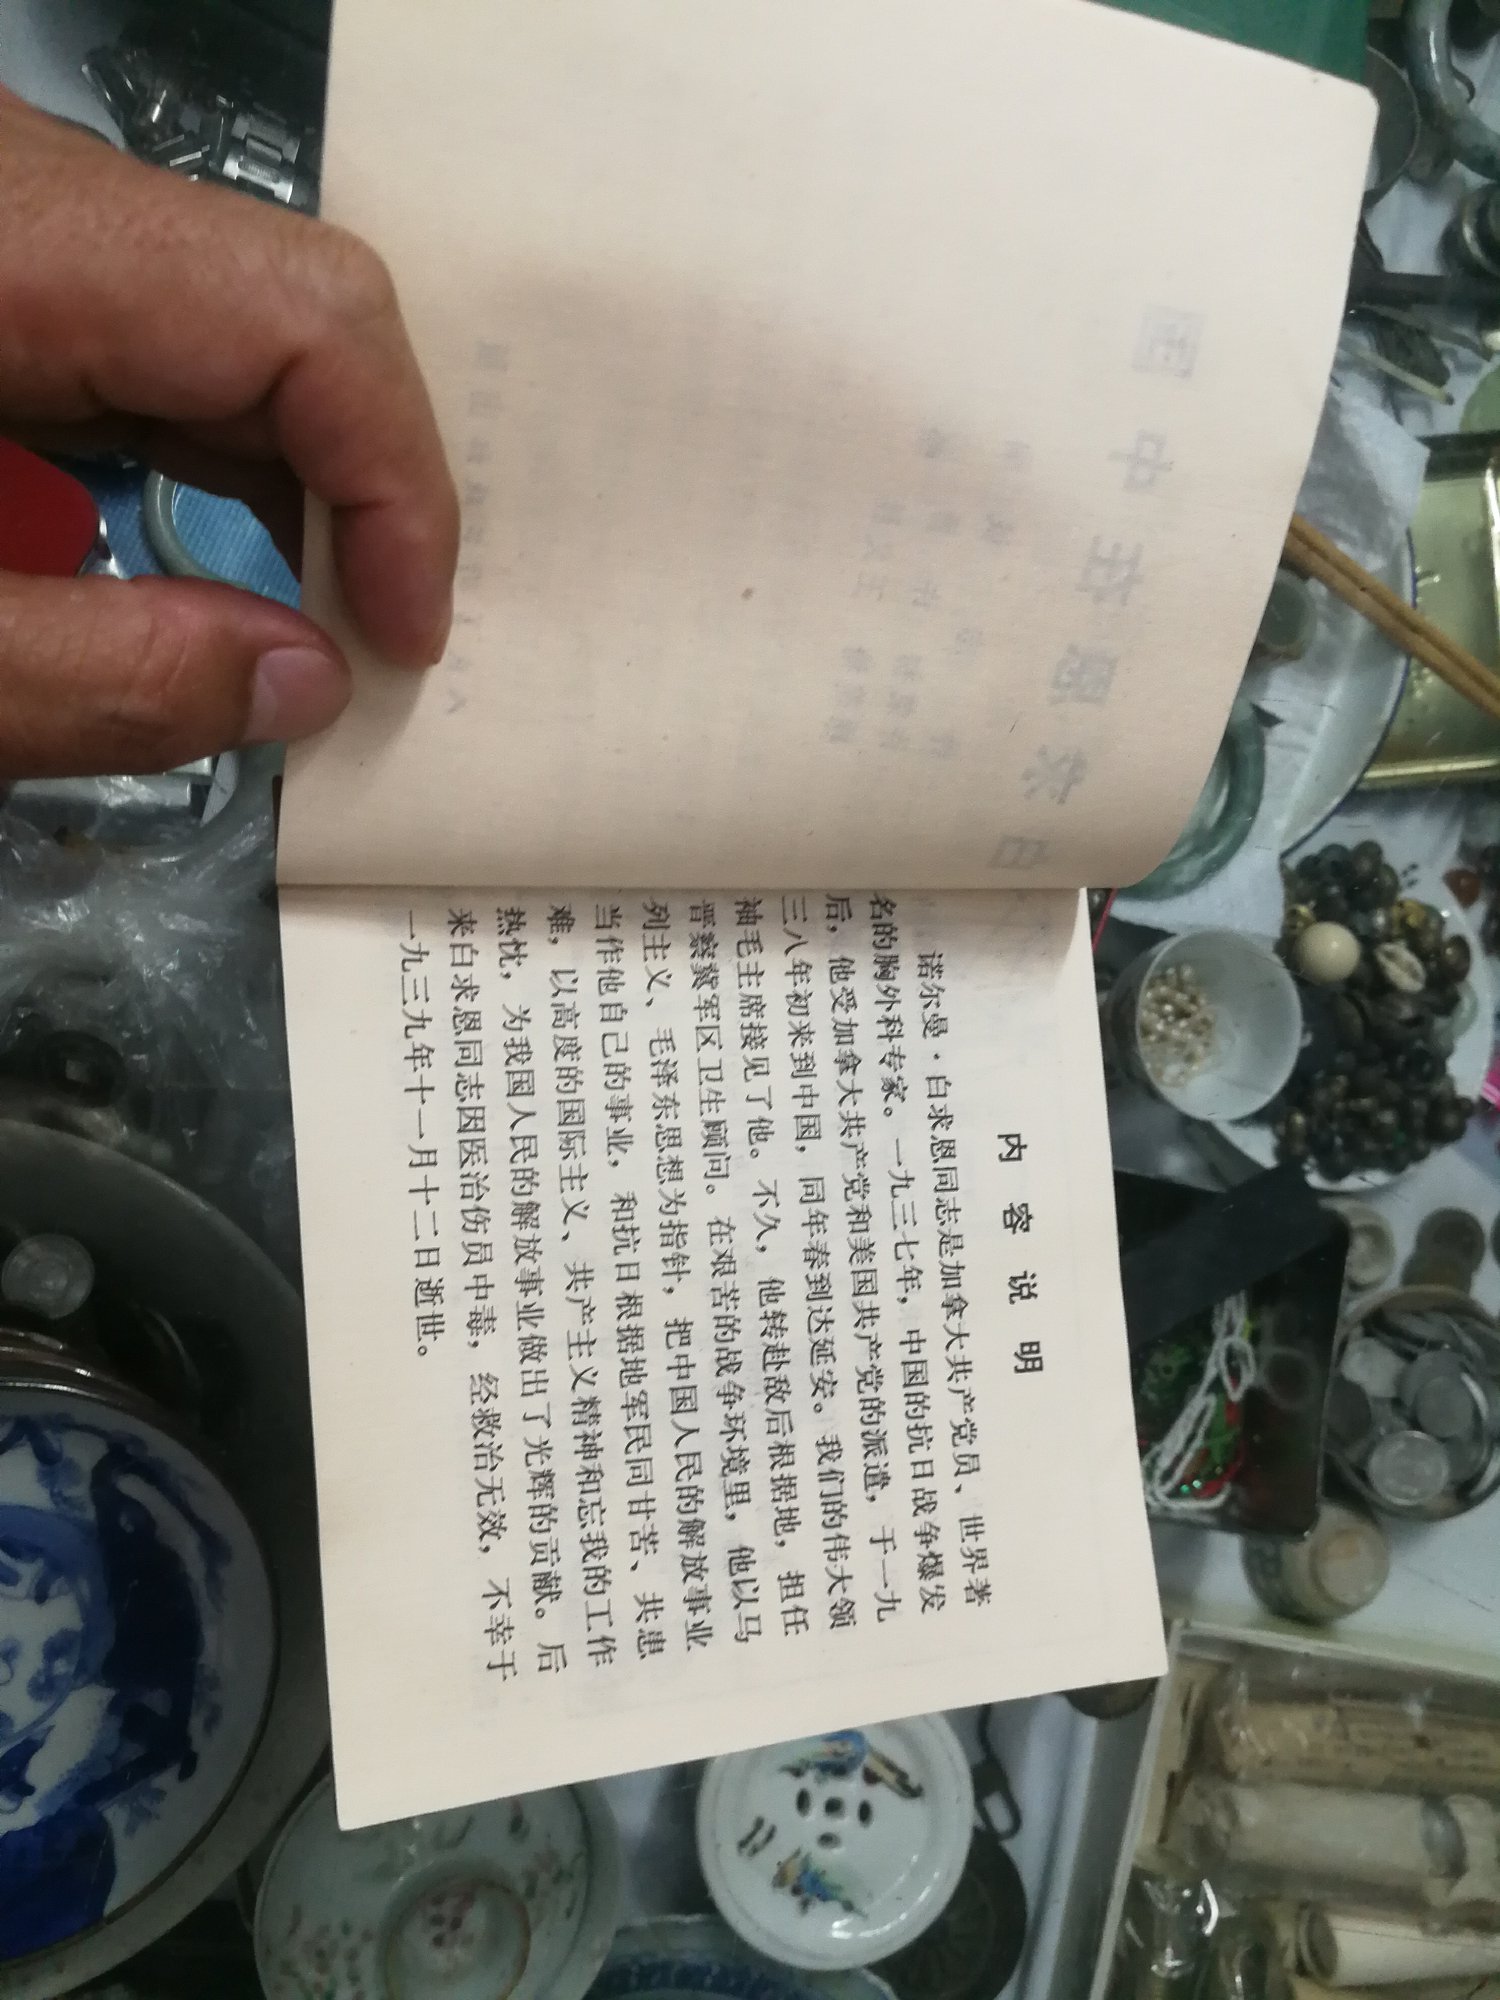 内容说明
诺尔曼·白求恩同志是加拿大共产党员、世界著
名的胸外科专家。一九三七年，中国的抗日战争爆发
后，他受加拿大共产党和美国共产党的派遣，于一九
三八年初来到中国，同年春到达延安。我们的伟大领
袖毛主席接见了他。不久，他转赴敌后根据地，担任
晋察冀军区卫生顾问。在艰苦的战争环境里，他以马
列主义、毛泽东思想为指针，把中国人民的解放事业
当作他自己的事业，和抗日根据地军民同甘苦、共患
难，以高度的国际主义、共产主义精神和忘我的工作
热忱，为我国人民的解放事业做出了光辉的贡献。后
来白求恩同志因医治伤员中毒，经救治无效，不幸于
一九三九年十一月十二日逝世。